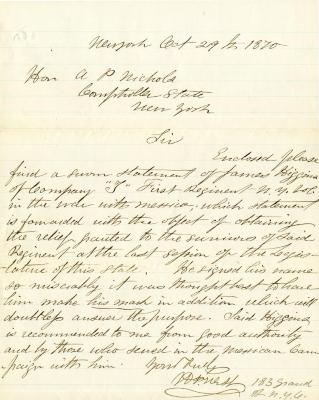 New York Oct 29th 1870
Hon A P Nichols
Comptroller State
New York
Sir
Enclosed please
find a sworn statement of James Higgins
of Company "I" First Regiment N.Y. Vols
in the war with Mexico, which statement
is forwarded with the object of obtaining
the relief granted to the survivors of said
Regiment at the last session of the Legis-
lature of this state. He signed his name
so miserably it was thought best to have
him make his mark in addition which will
doubtless answer the purpose. Said Higgins
is recommended to me from good authority
and by those who served in the Mexican Cam
paign with him. Yours Truly
183 Grand
St N.Y.C.